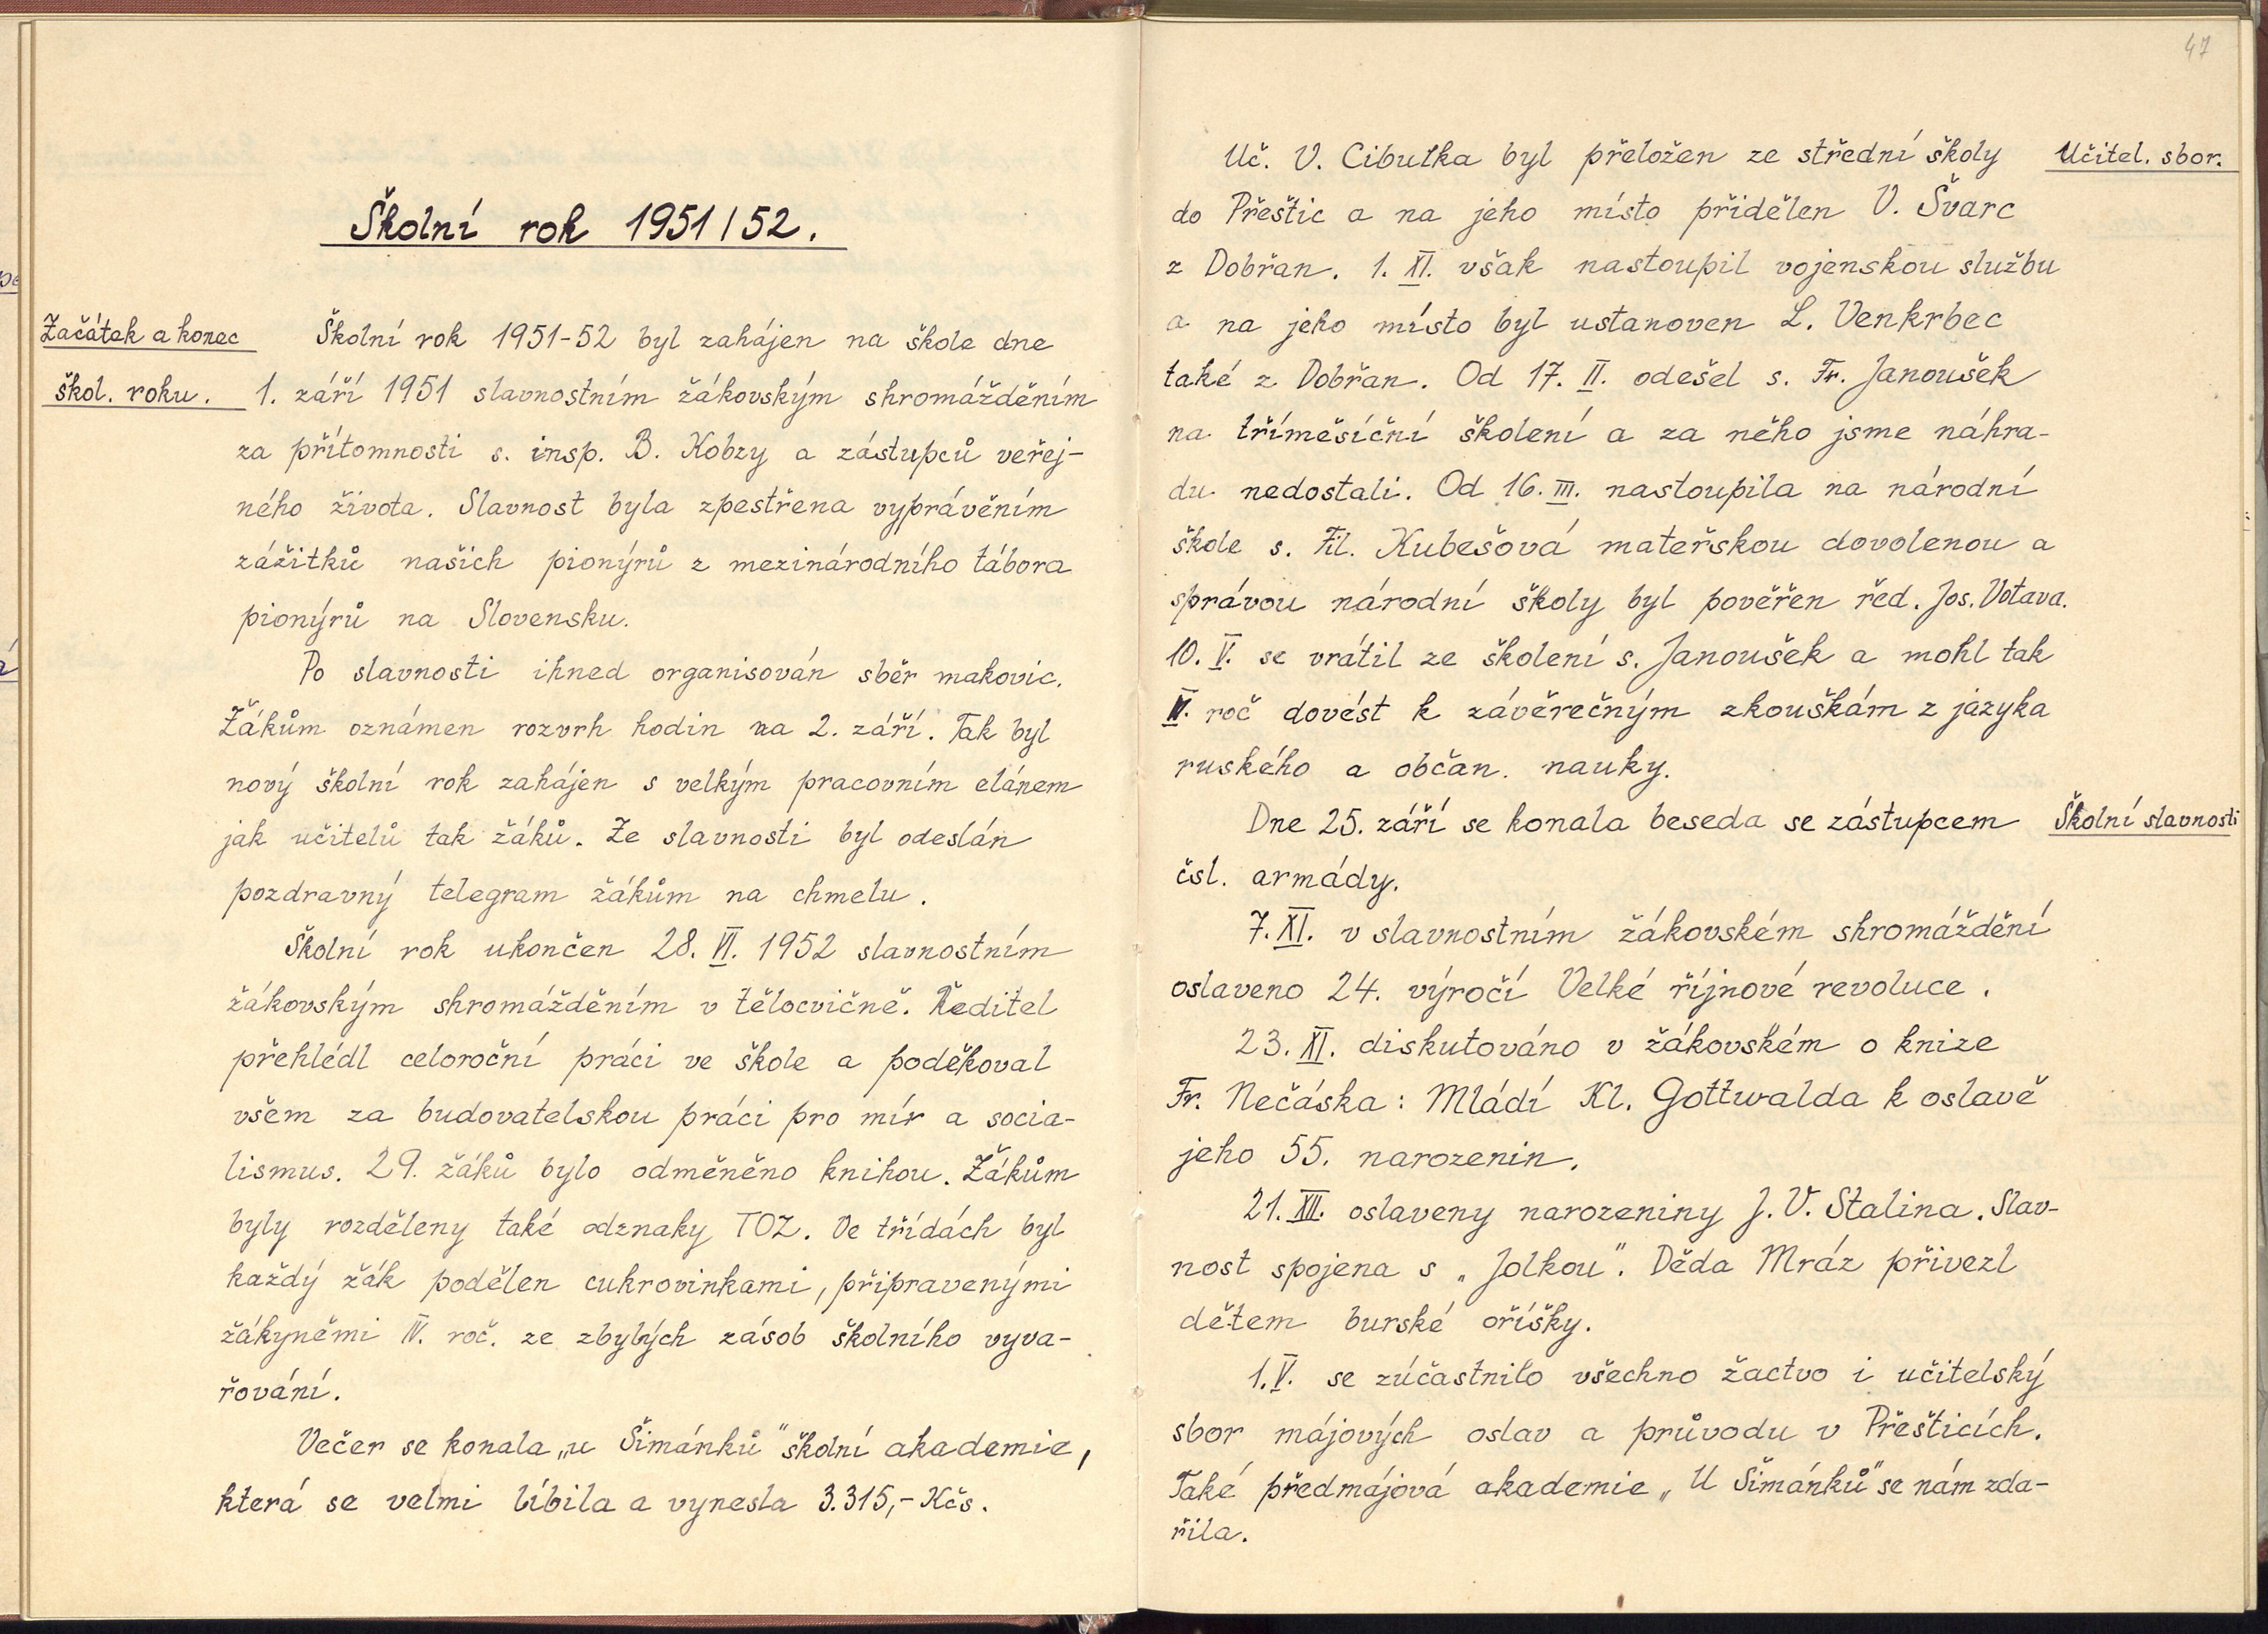 Školní rok 1951/52.
Začátek a konec
škol. roku.
Školní rok 1951-52 byl zahájen na škole dne
1. září 1951 slavnostním žákovským shromážděním
za přítomnosti s. insp. B. Kobzy a zástupců veřej-
ného života. Slavnost byla zpestřena vyprávěním
zážitků našich pionýrů z mezinárodního tábora
pionýrů na Slovensku.
Po slavnosti ihned organisován sběr makovic.
Žákům oznámen rozvrh hodin na 2. září. Tak byl
nový školní rok zahájen s velkým pracovním elánem
jak učitelů tak žáků. Ze slavnosti byl odeslán
pozdravný telegram žákům na chmelu.
Školní rok ukončen 28. VI. 1952 slavnostním
žákovským shromážděním v tělocvičně. Ředitel
přehlédl celoroční práci ve škole a poděkoval
všem za budovatelskou práci pro mír a socia-
lismus. 29. žáků bylo odměněno knihou. Žákům
byly rozděleny také odznaky TOZ. Ve třídách byl
každý žák podělen cukrovinkami, připravenými
žákyněmi IV. roč. ze zbylých zásob školního vyva-
řování.
Večer se konala „u Šimánků" školní akademie,
která se velmi líbila a vynesla 3.315,- Kčs.
47
Učitel. sbor.
Uč. V. Cibulka byl přeložen ze střední školy
do Přeštic a na jeho místo přidělen V. Švarc
z Dobřan. 1. XI. však nastoupil vojenskou službu
a na jeho místo byl ustanoven L. Venkrbec
také z Dobřan. Od 17. II. odešel s. Fr. Janoušek
na tříměsíční školení a za něho jsme náhra-
du nedostali. Od 16. III. nastoupila na národní
škole s. Fil. Kubešová mateřskou dovolenou a
správou národní školy byl pověřen řed. Jos. Votava.
10. V. se vrátil ze školení s. Janoušek a mohl tak
IV. roč dovést k závěrečným zkouškám z jazyka
ruského a občan. nauky.
Školní slavnosti
Dne 25. září se konala beseda se zástupcem
čsl. armády.
7. XI. v slavnostním žákovském shromáždění
oslaveno 24. výročí Velké říjnové revoluce.
23. XI. diskutováno v žákovském o knize
Fr. Nečáska: Mládí Kl. Gottwalda k oslavě
jeho 55. narozenin.
21. XII. oslaveny narozeniny J. V. Stalina. Slav-
nost spojena s „Jolkou". Děda Mráz přivezl
dětem burské oříšky.
1. V. se zúčastnilo všechno žactvo i učitelský
sbor májových oslav a průvodu v Přešticích.
Také předmájová akademie „U Šimánků" se nám zda-
řila.